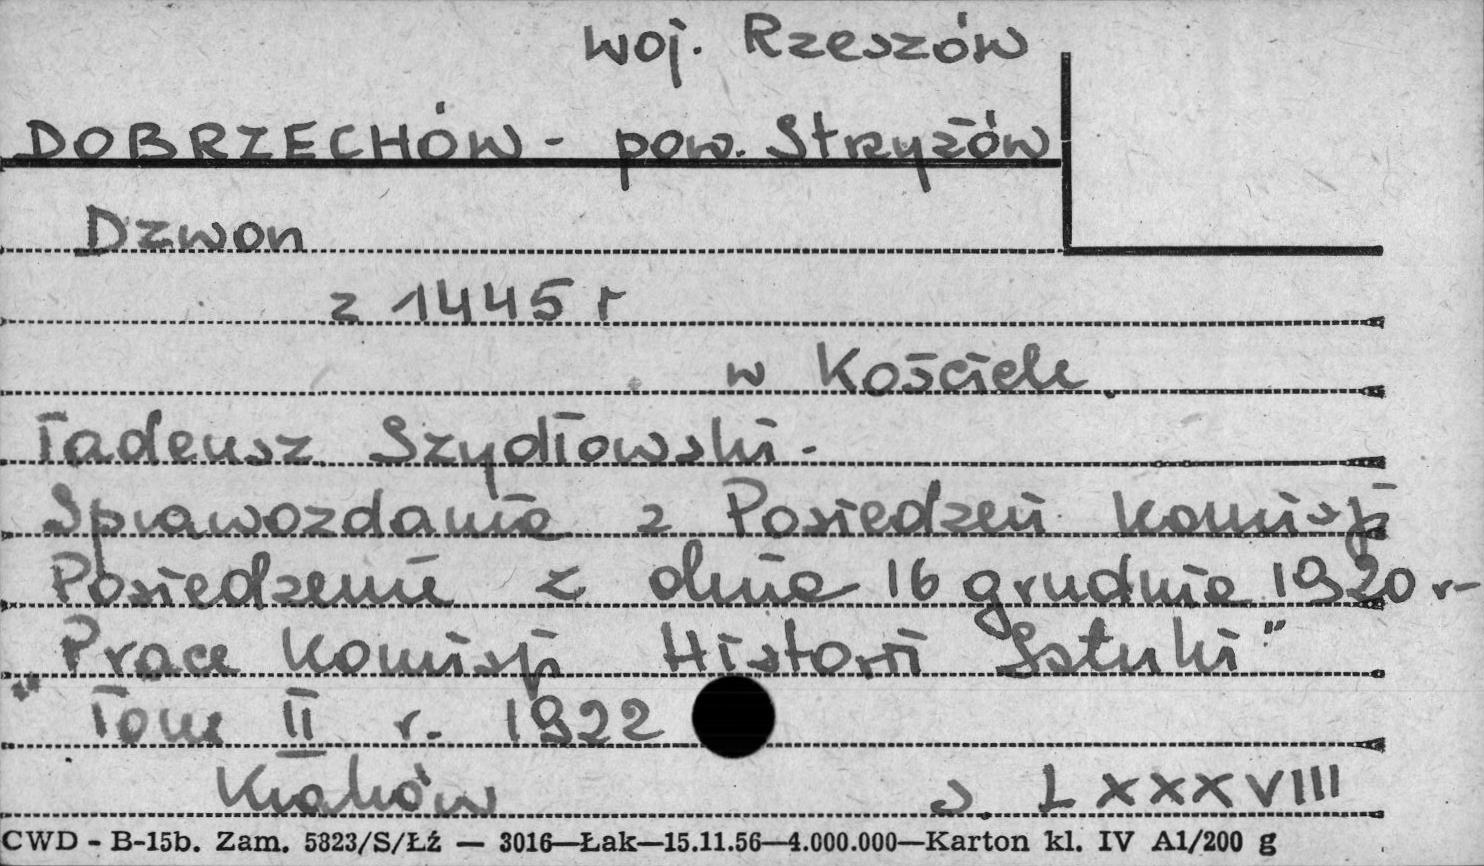 woj. Rzeszów
DOBRZECHÓW - pow. Strzyżów
Dzwon
z 1445 r
w Kościele
Tadeusz Szydłowski -
Sprawozdania z Posiedzeń Komisji
Posiedzenie z dnia 16 grudnia 1920 r-
Prace Komisji Historii Sztuki"
" Tom II r. 1922
Kraków s. LXXXVIII
CWD - B-15b. Zam. 5823/S/Łź — 3016—Łak—15.11.56—4.000.000—Karton kl. IV A1/200 g